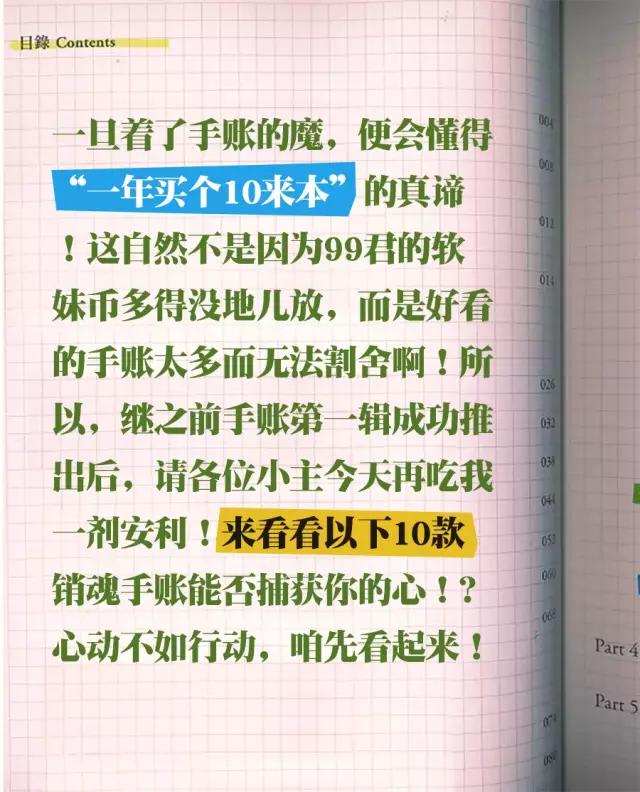 目錄 Contents
一旦着了手账的魔，便会懂得
“一年买个10来本”的真谛
！这自然不是因为99君的软
妹币多得没地儿放，而是好看
的手账太多而无法割舍啊！所
以，继之前手账第一辑成功推
出后，请各位小主今天再吃我
一剂安利！来看看以下10款
销魂手账能否捕获你的心！？
心动不如行动，咱先看起来！
004
008
012
014
026
032
038
044
052
060
068
074
080
Part 4
Part 5